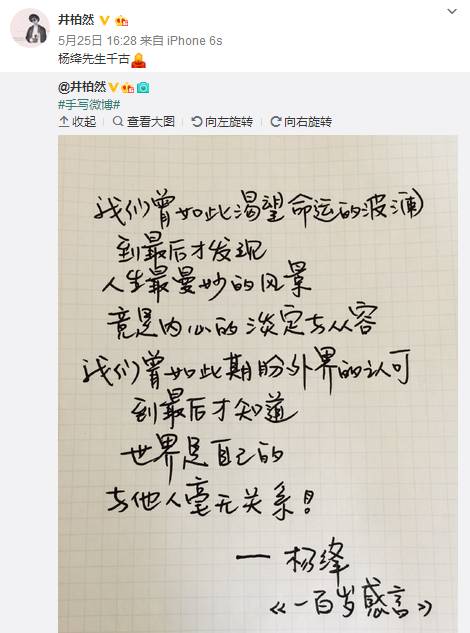 井柏然
5月25日 16:28 来自 iPhone 6s
杨绛先生千古
@井柏然
#手写微博#
收起 查看大图 向左旋转 向右旋转
我们曾如此渴望命运的波澜
到最后才发现
人生最曼妙的风景
竟是内心的淡定与从容
我们曾如此期盼外界的认可
到最后才知道
世界是自己的
与他人毫无关系!
— 杨绛
《一百岁感言》